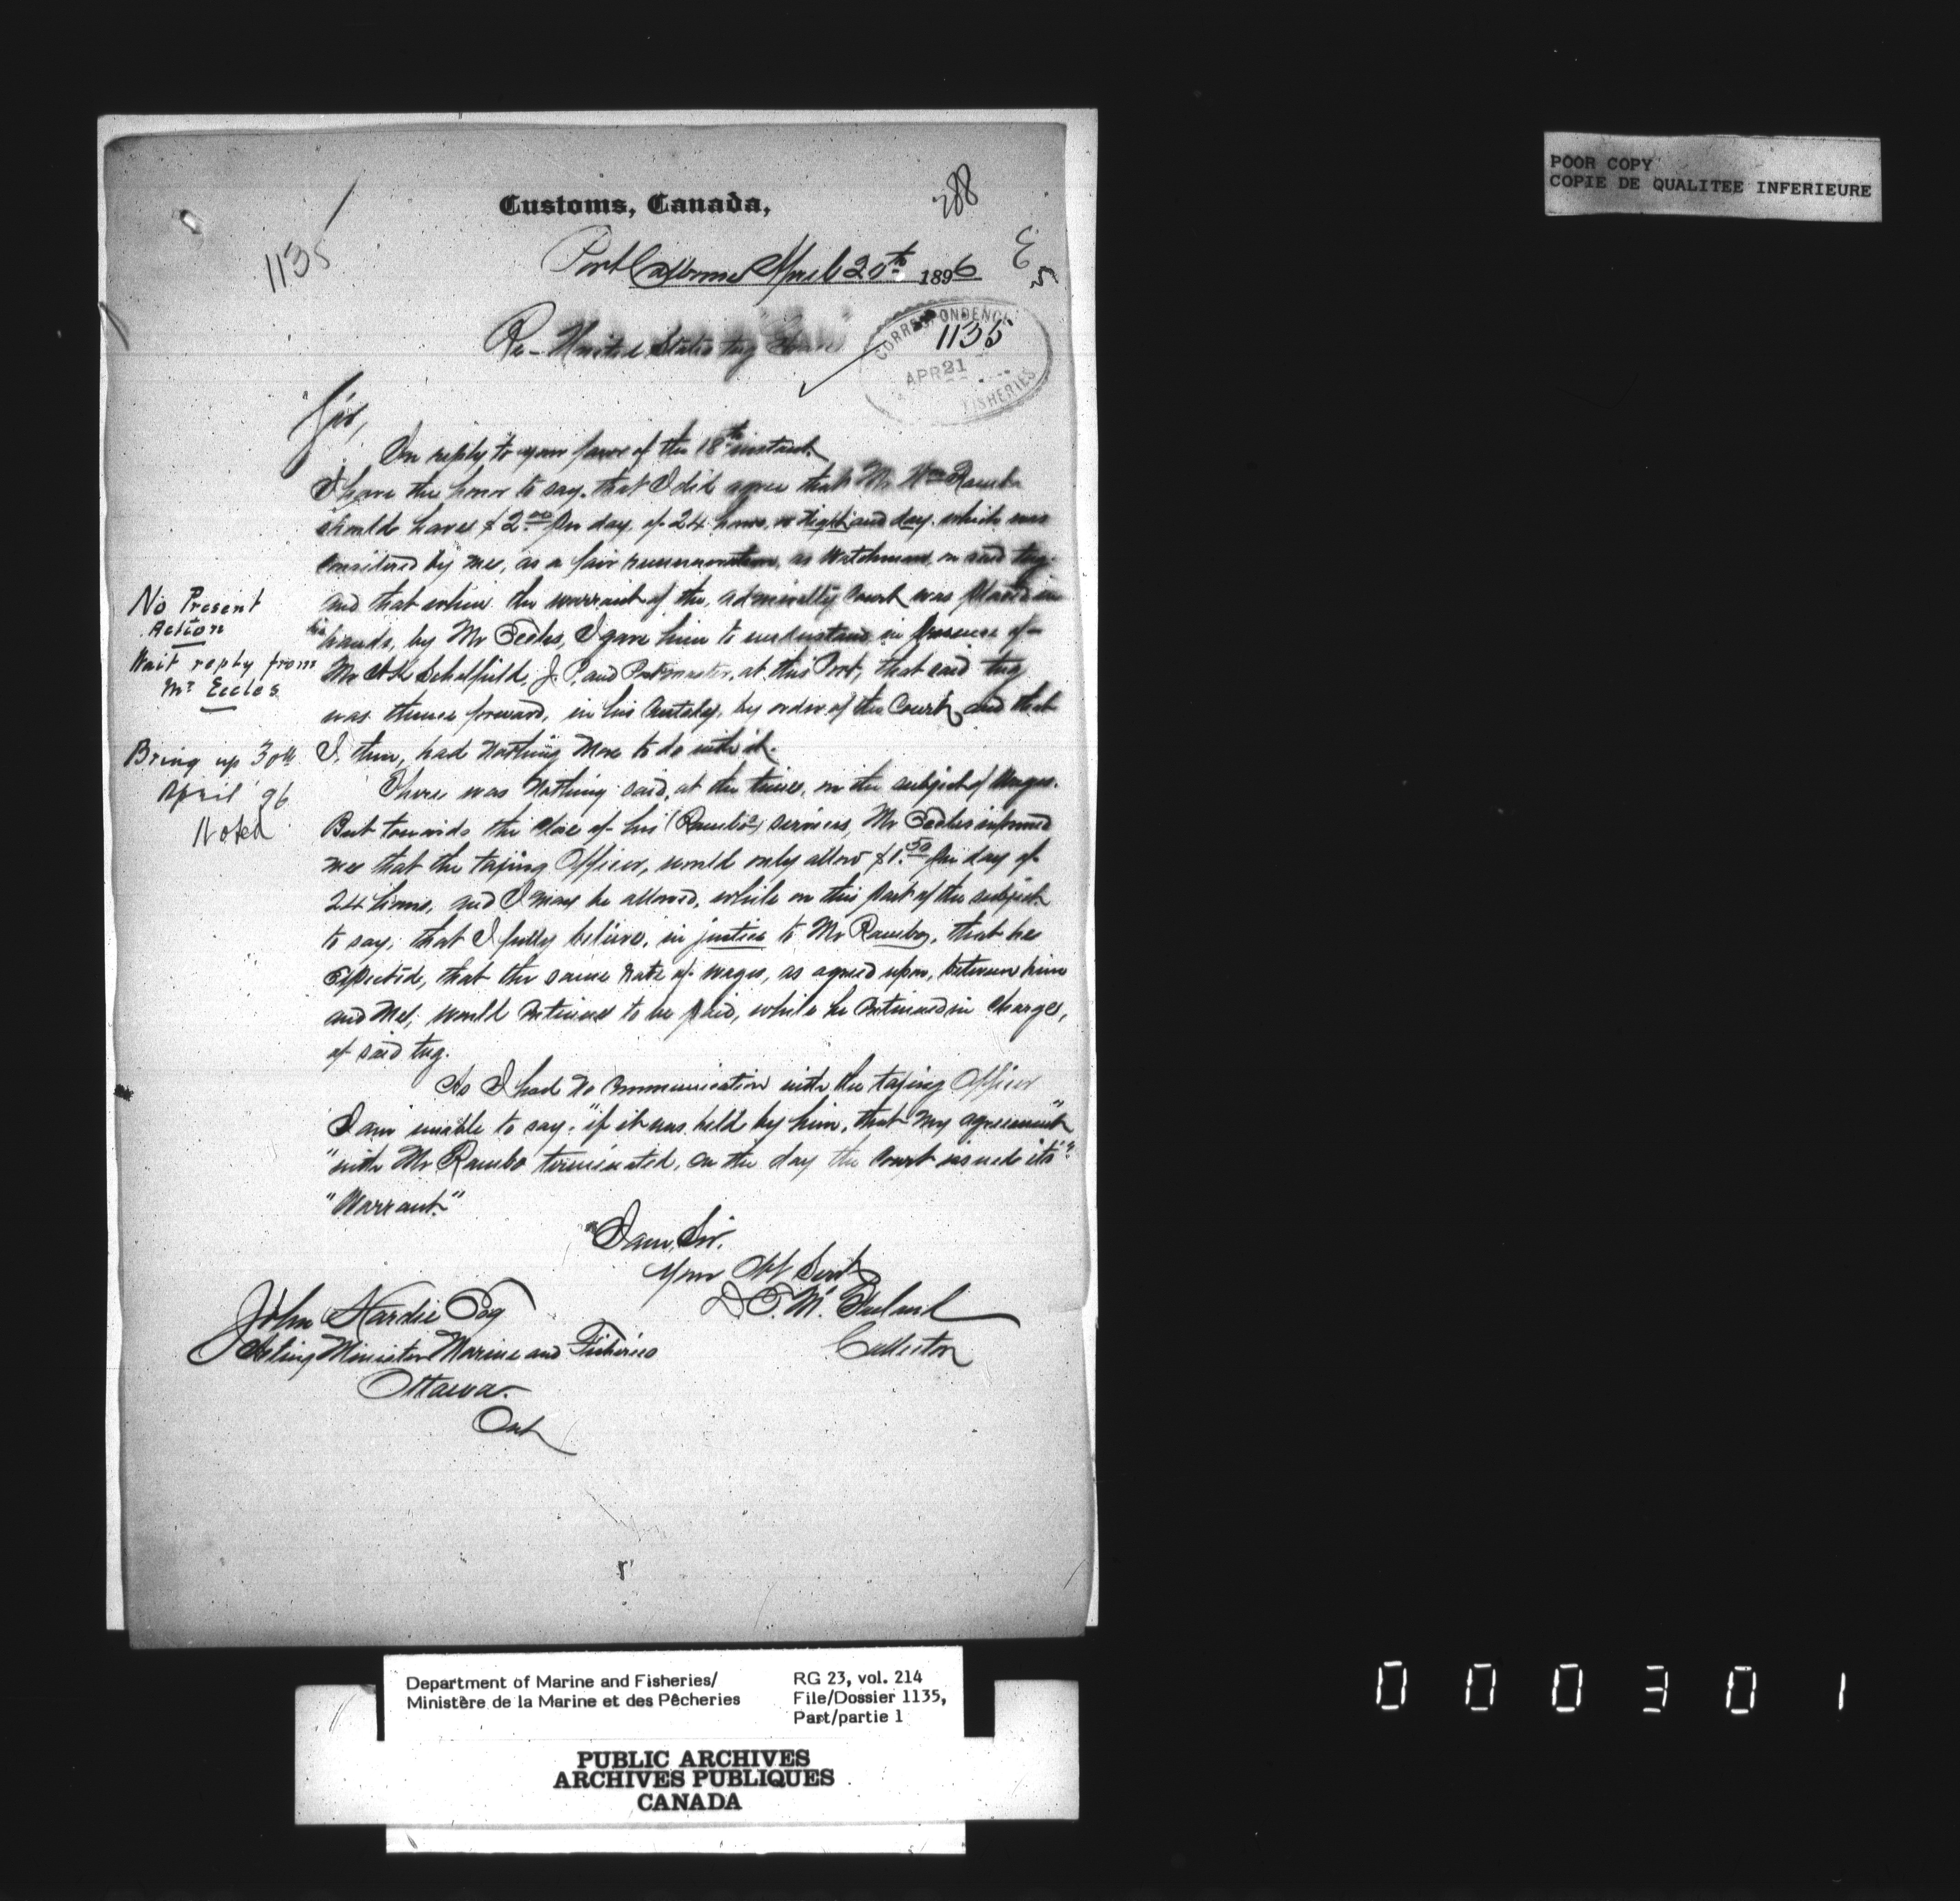 288
Customs, Canada,
1135
Port Colborne April 20th 1896
E
5
Re- United States tug
CORRESPONDENCE
1135
APR 21
FISHERIES
Sir,
In reply to your favor of the 18th instant.
I have the honor to say, that I did agree that Mr Wm Rambo
should have $2.00 per day, of 24 hours, or night and day, which was
considered by me, as a fair remuneration, as Watchman, on said tug.
and that when the warrant of the, admiralty Court was placed in
his hands, by Mr Eccles, I gave him to understand, in presence of
Mr Schofield, J.P. and Postmaster, at this Port, that said tug
was thence forward, in his Custody, by order of the Court, and that
I, then, had nothing more to do with it.
There was nothing said, at the time, on the subject of Wages.
But towards the close of his (Rambo's) services, Mr Eccles informed
me that the taxing Officer, would only allow $1.50 per day of
24 hours, and I may be allowed, while on this part of the subject
to say, that I fully believe, in justice to Mr Rambo, that he
expected, that the same rate of wages, as agreed upon, between him
and me, would continue to be paid, while he continued in charge,
of said tug.
As I had no communication with the taxing Officer
I am unable to say, "if it was held by him, that my agreement"
"with Mr Rambo terminated, on the day the Court issued its"
"Warrant."
I am, Sir.
Your Obt Servt
Collector
John Hardie Esq
Acting Minister Marine and Fisheries
Ottawa.
Ont
No Present
Action
Wait reply from
Mr Eccles
Bring up 30th
April '96
Noted
POOR COPY
COPIE DE QUALITEE INFERIEURE
Department of Marine and Fisheries/
Ministère de la Marine et des Pêcheries
RG 23, vol. 214
File/Dossier 1135,
Part/partie 1
PUBLIC ARCHIVES
ARCHIVES PUBLIQUES
CANADA
000301